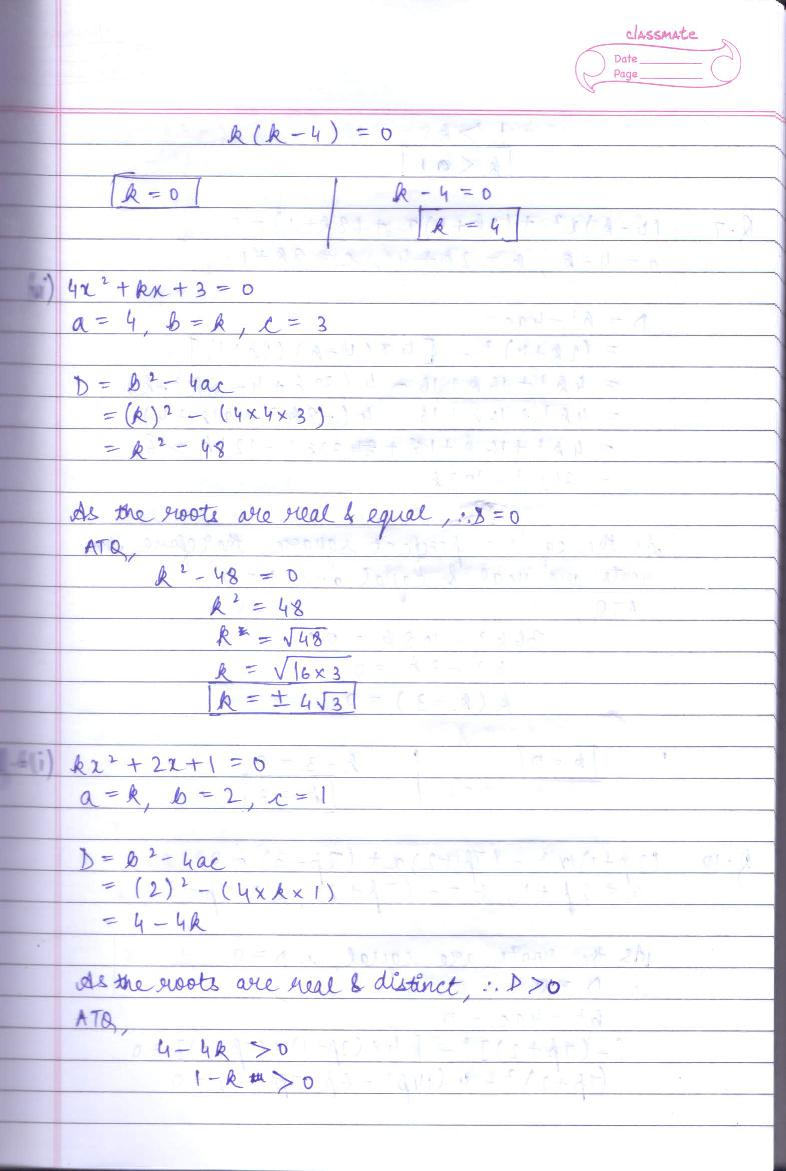 classmate
Date
Page
k(k-4) = 0
k = 0
k - 4 = 0
k = 4
4x² + kx + 3 = 0
a = 4, b = k, c = 3
D = b² - 4ac
= (k)² - (4×4×3)
= k² - 48
As the roots are real & equal, ∴ D = 0
ATQ,
k² - 48 = 0
k² = 48
k = √48
k = √16×3
k = ± 4√3
(i) kx² + 2x + 1 = 0
a = k, b = 2, c = 1
D = b² - 4ac
= (2)² - (4×k×1)
= 4 - 4k
As the roots are real & distinct, ∴ D > 0
ATQ,
4 - 4k > 0
1 - k > 0